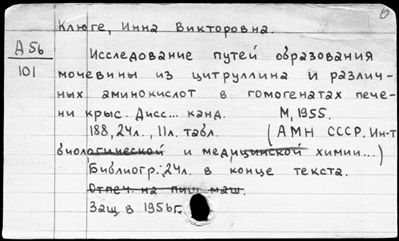 Клюге, Инна Викторовна.
А 56
101
Исследование путей образования
мочевины из цитруллина и различ-
ных аминокислот в гомогенатах пече-
ни крыс. Дисс... канд. М, 1955.
188, 24л., 11л. табл. (АМН СССР. Ин-т
биологической и медицинской химии...)
Библиогр.: 24л. в конце текста.
Отпеч. на пиш маш.
Защ. в 1956г.